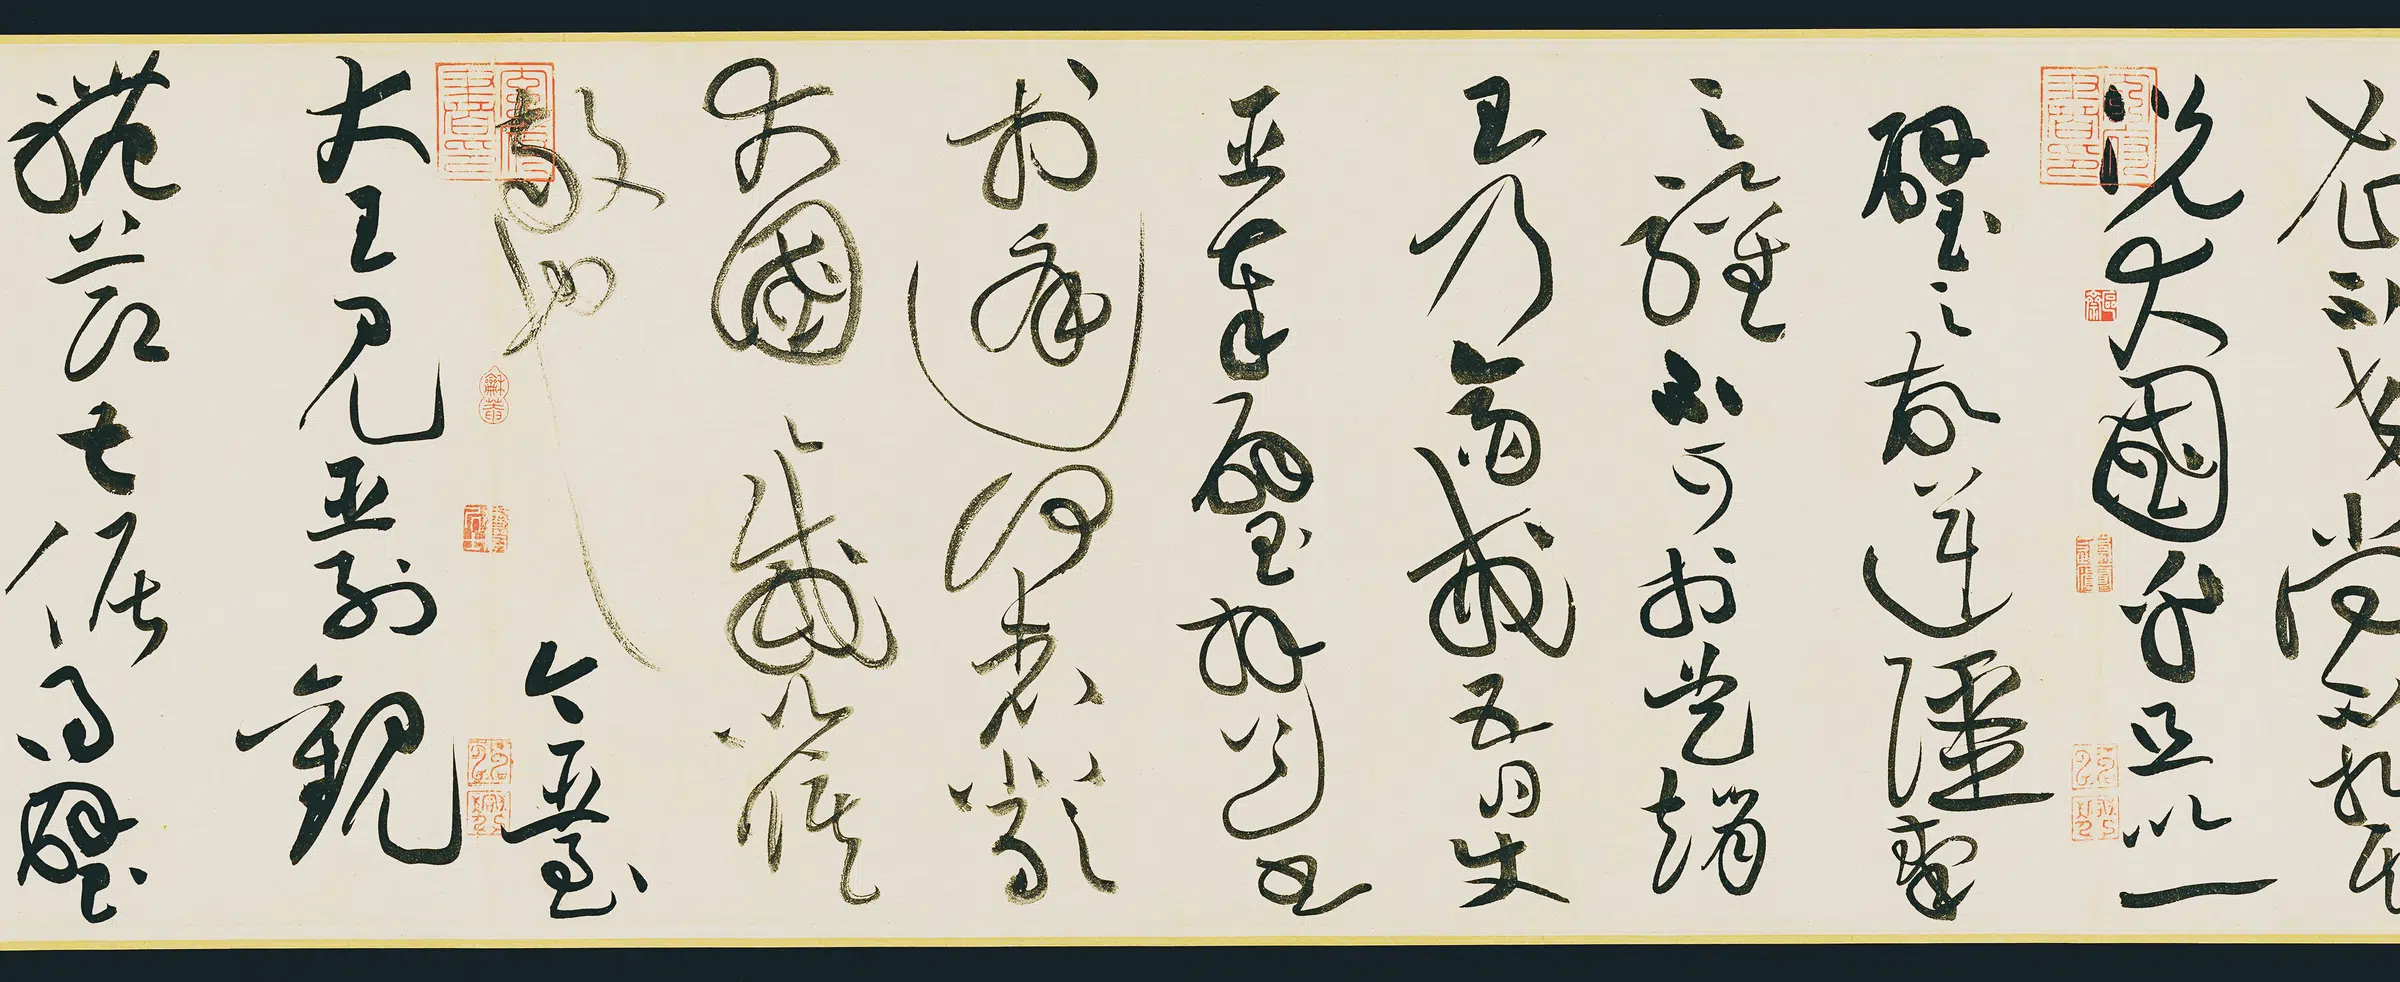 衣之交尚不相欺
況大國乎且以一
璧之故逆彊秦
之驩不可於是趙
王乃齋戒五日使
臣奉璧拜送書
於庭何者嚴
大國之威以脩
敬也今臣至
大王見臣列觀
禮節甚倨得璧